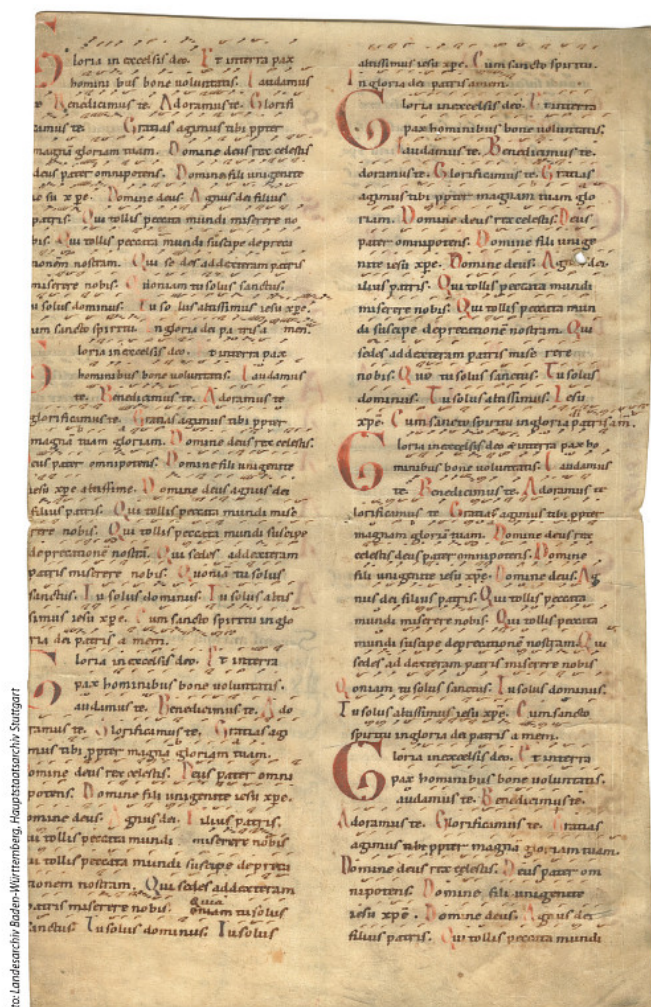 loria in excelsis deo. Et interra pax
homini bus bone voluntatis. Laudamus
Benedicimus te. Adoramus te. Glorifi
camus te. Gratias agimus tibi ppter
magnā gloriam tuam. Domine deus rex celestis
deus pater omnipotens. Domine fili unigenite
ie su x pe. Domine deus. Agnus dei filius
patris. Qui tollis peccata mundi miserere no
bis. Qui tollis peccata mundi suscipe depreca
tionem nostram. Qui se des addexteram patris
miserere nobis. Quoniam tu solus sanctus.
u solus dominus. Tu so lus altissimus iesu xpe.
um sancto spiritu In gloria dei pa tris a men.
loria in excelsis deo. Et interra pax
hominibus bone voluntatis. Laudamus
te. Benedicimus te. Adoramus te
glorificamus te. Gratias agimus tibi ppter
magnā tuam gloriam. Domine deus rex celestis.
eus pater omnipotens. Domine fili unigenite
iesu xpe altissime. Domine deus agnus dei
filius patris. Qui tollis peccata mundi mise
rere nobis. Qui tollis peccata mundi suscipe
deprecationē nostrā. Qui sedes addexteram
patris miserere nobis. Quoniā tu solus
sanctus. Tu solus dominus. Tu solus altis
simus iesu xpe. Cum sancto spiritu in glo
ria dei patris a men.
loria in excelsis deo. Et interra
pax hominibus bone voluntatis.
audamus te. Benedicimus te. Ado
ramus te. Glorificamus te. Gratias agi
mus tibi ppter magnā gloriam tuam.
omine deus rex celestis. Deus pater omni
potens. Domine fili unigenite iesu xpe.
omine deus. Agnus dei. Filius patris.
ui tollis peccata mundi miserere nobis
ui tollis peccata mundi suscipe depreca
tionem nostram. Qui sedes addexteram
patris miserere nobis. quia oniam tu solus
sanctus. Tu solus dominus. Tu solus
altissimus iesu xpe. Cum sancto spiritu.
In gloria dei patris amen.
Gloria in excelsis deo. Et interra
pax hominibus bone voluntatis.
Laudamus te. Benedicimus te.
doramus te. Glorificamus te. Gratias
agimus tibi ppter magnam tuam glo
riam. Domine deus rex celestis. Deus
pater omnipotens. Domine fili unige
nite iesu xpe. Domine deus. Agnus dei
ilius patris. Qui tollis peccata mundi
miserere nobis. Qui tollis peccata mun
di suscipe deprecationē nostram. Qui
sedes addexteram patris mise rere
nobis. Quō tu solus sanctus. Tu solus
dominus. Tu solus altissimus. Iesu
xpē. Cum sancto spiritu in gloria patris am̄.
Gloria in excelsis deo et interra pax ho
minibus bone voluntatis. Laudamus
te. Benedicimus te. Adoramus te
lorificamus te Gratias agimus tibi ppter
magnam gloriā tuam. Domine deus rex
celestis deus pater omnipotens. Domine
fili unigenite iesu xpe. Domine deus. Ag
nus dei filius patris. Qui tollis peccata
mundi miserere nobis. Qui tollis peccata
mundi suscipe deprecationē nostram. Qui
sedes ad dexteram patris miserere nobis
Quoniam tu solus sanctus. Tu solus dominus.
Tu solus altissimus iesu xpe. Cum sancto
spiritu in gloria dei patris a men.
Gloria in excelsis deo. Et interra
pax hominibus bone voluntatis.
audamus te. Benedicimus te.
Adoramus te. Glorificamus te. Gratias
agimus tibi ppter magnā gloriam tuam.
Domine deus rex celestis. Deus pater om
nipotens. Domine fili unigenite
iesu xpē. Domine deus. Agnus dei
filius patris. Qui tollis peccata mundi
to: Landesarchiv Baden-Württemberg, Hauptstaatsarchiv Stuttgart